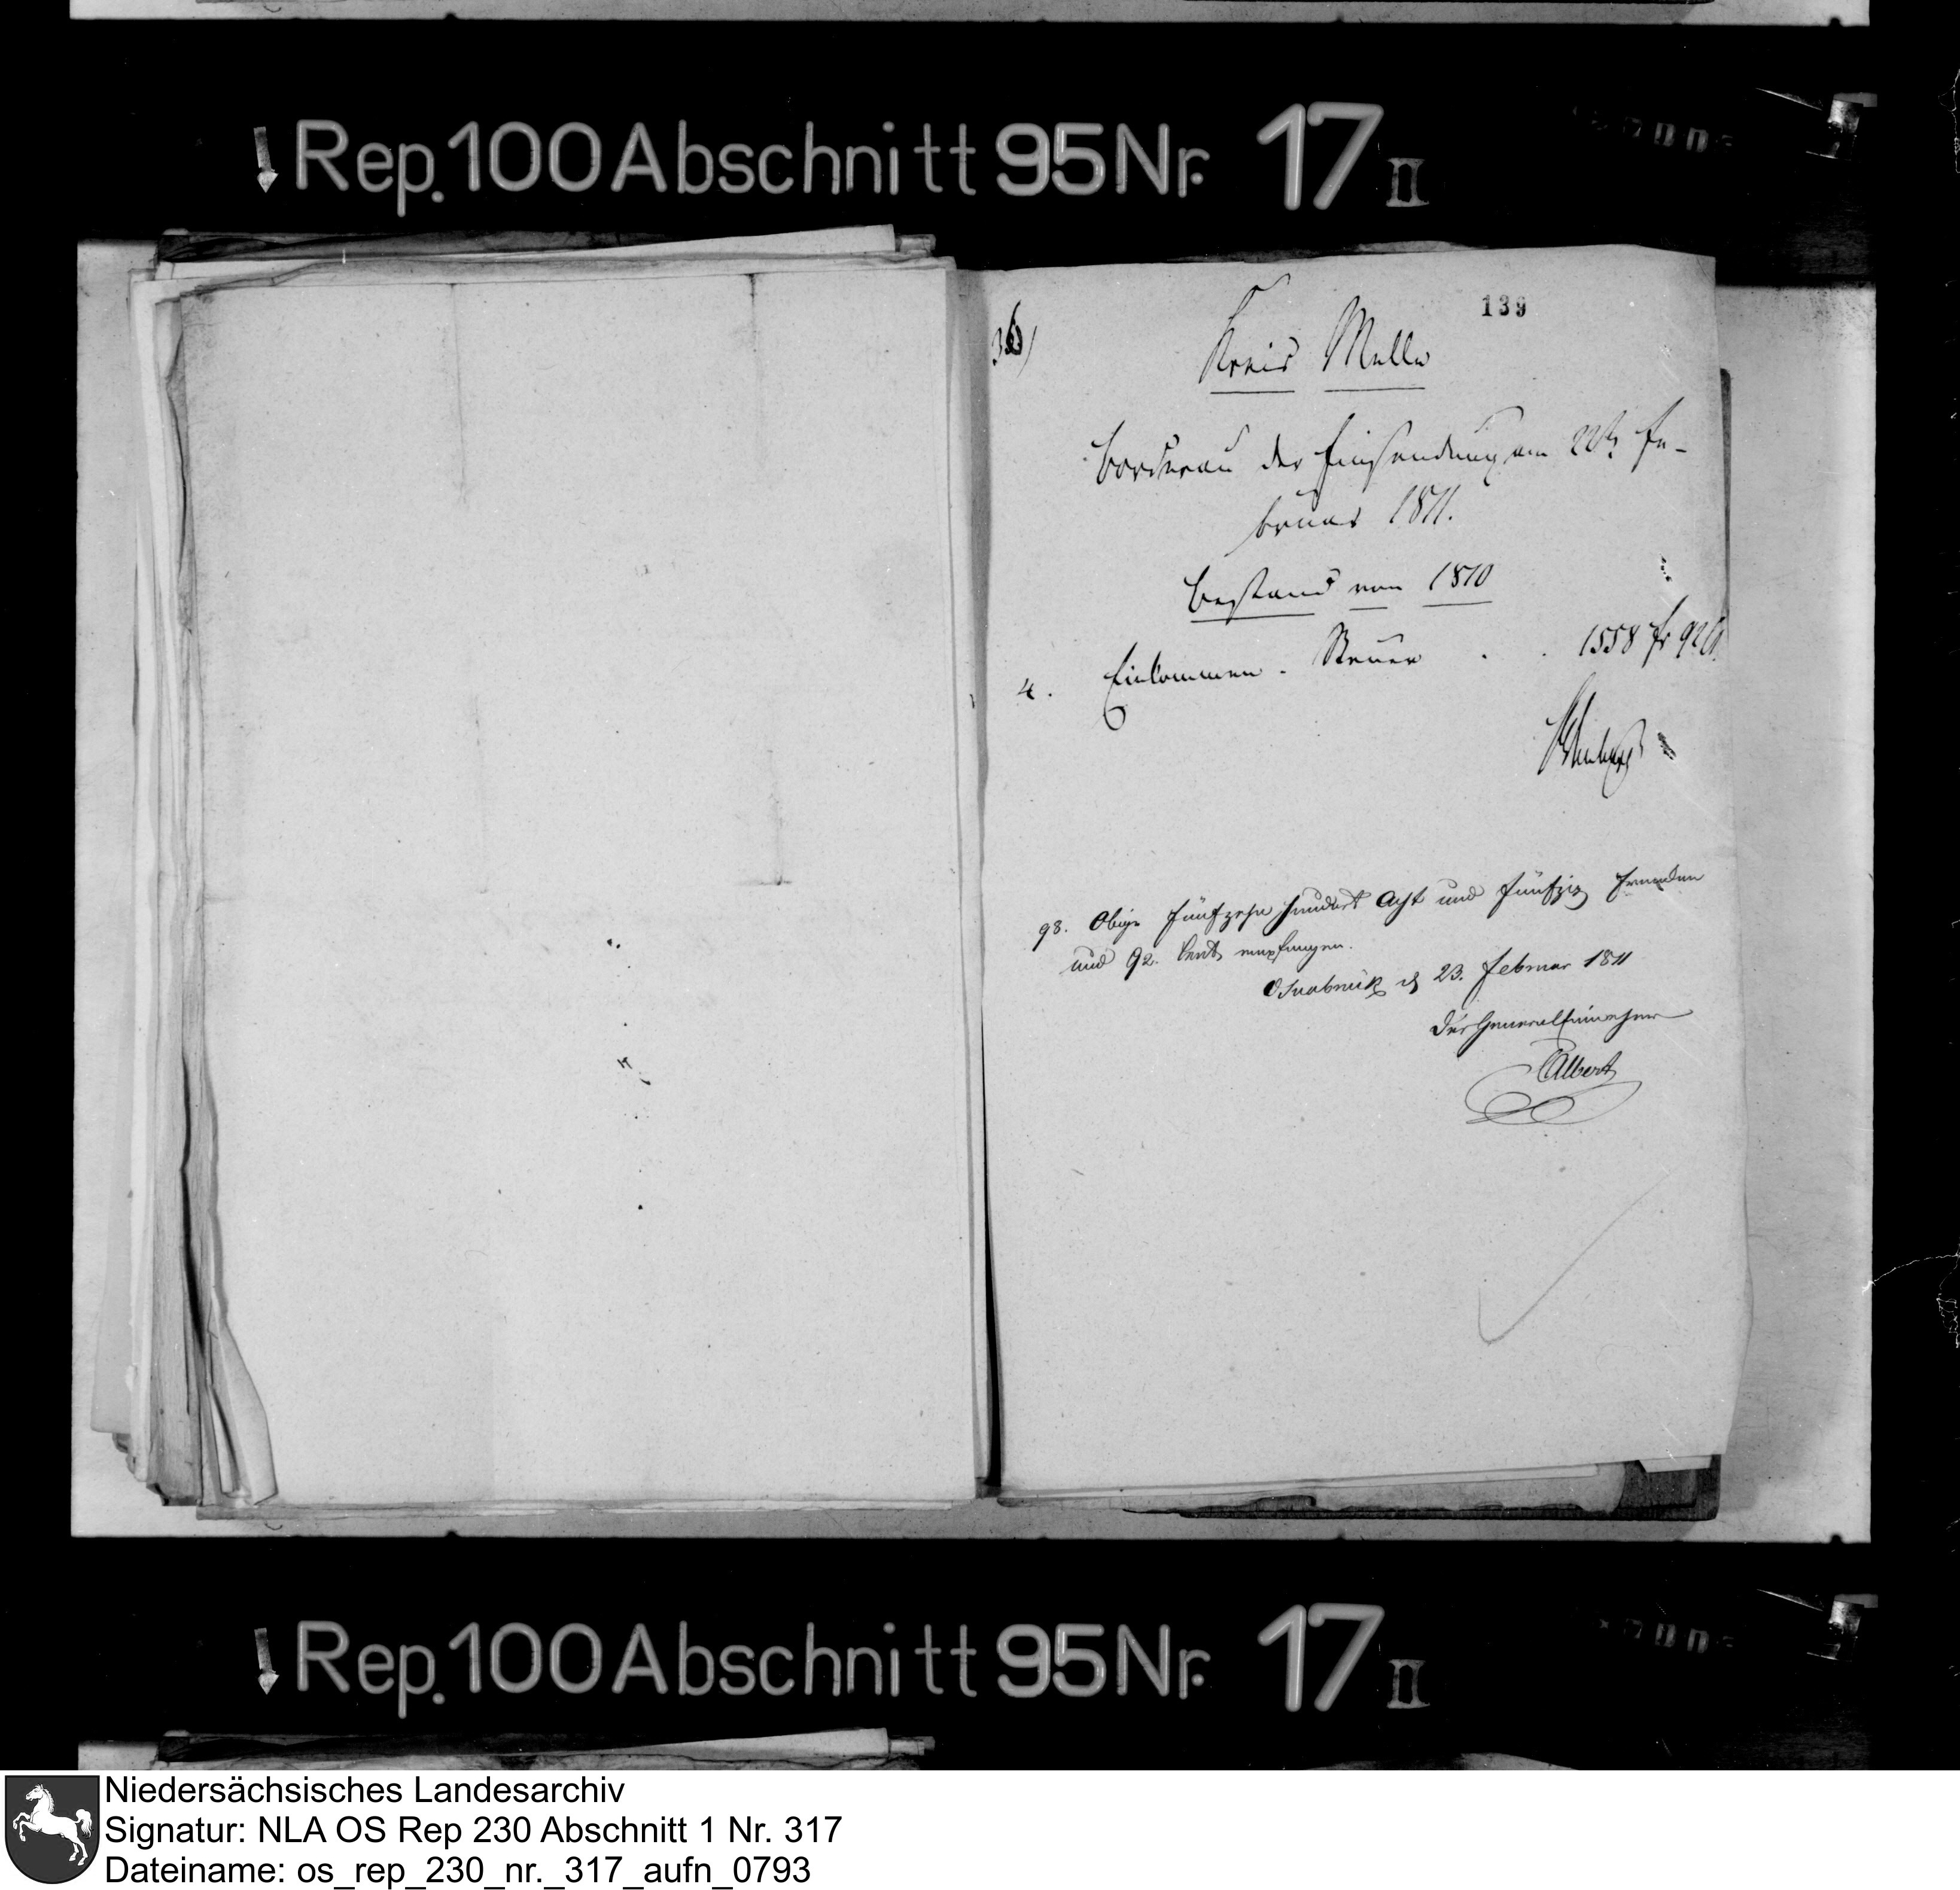 Rep. 100 Abschnitt 95 Nr. 17 II
139
36)
Kreis Melle
Borderau der Einsendung am 22t Fe-
bruar 1811.
Bestand von 1810
4. Einkommen-Steuer . . 1558 fr 92 Ct.
98. Obige Fünfzehn hundert Acht und Fünfzig Franken
und 92. Cent empfangen.
Osnabrück d 23. Februar 1811
Der General Einnehmer
Albert
Rep. 100 Abschnitt 95 Nr. 17 II
Niedersächsisches Landesarchiv
Signatur: NLA OS Rep 230 Abschnitt 1 Nr. 317
Dateiname: os_rep_230_nr._317_aufn_0793